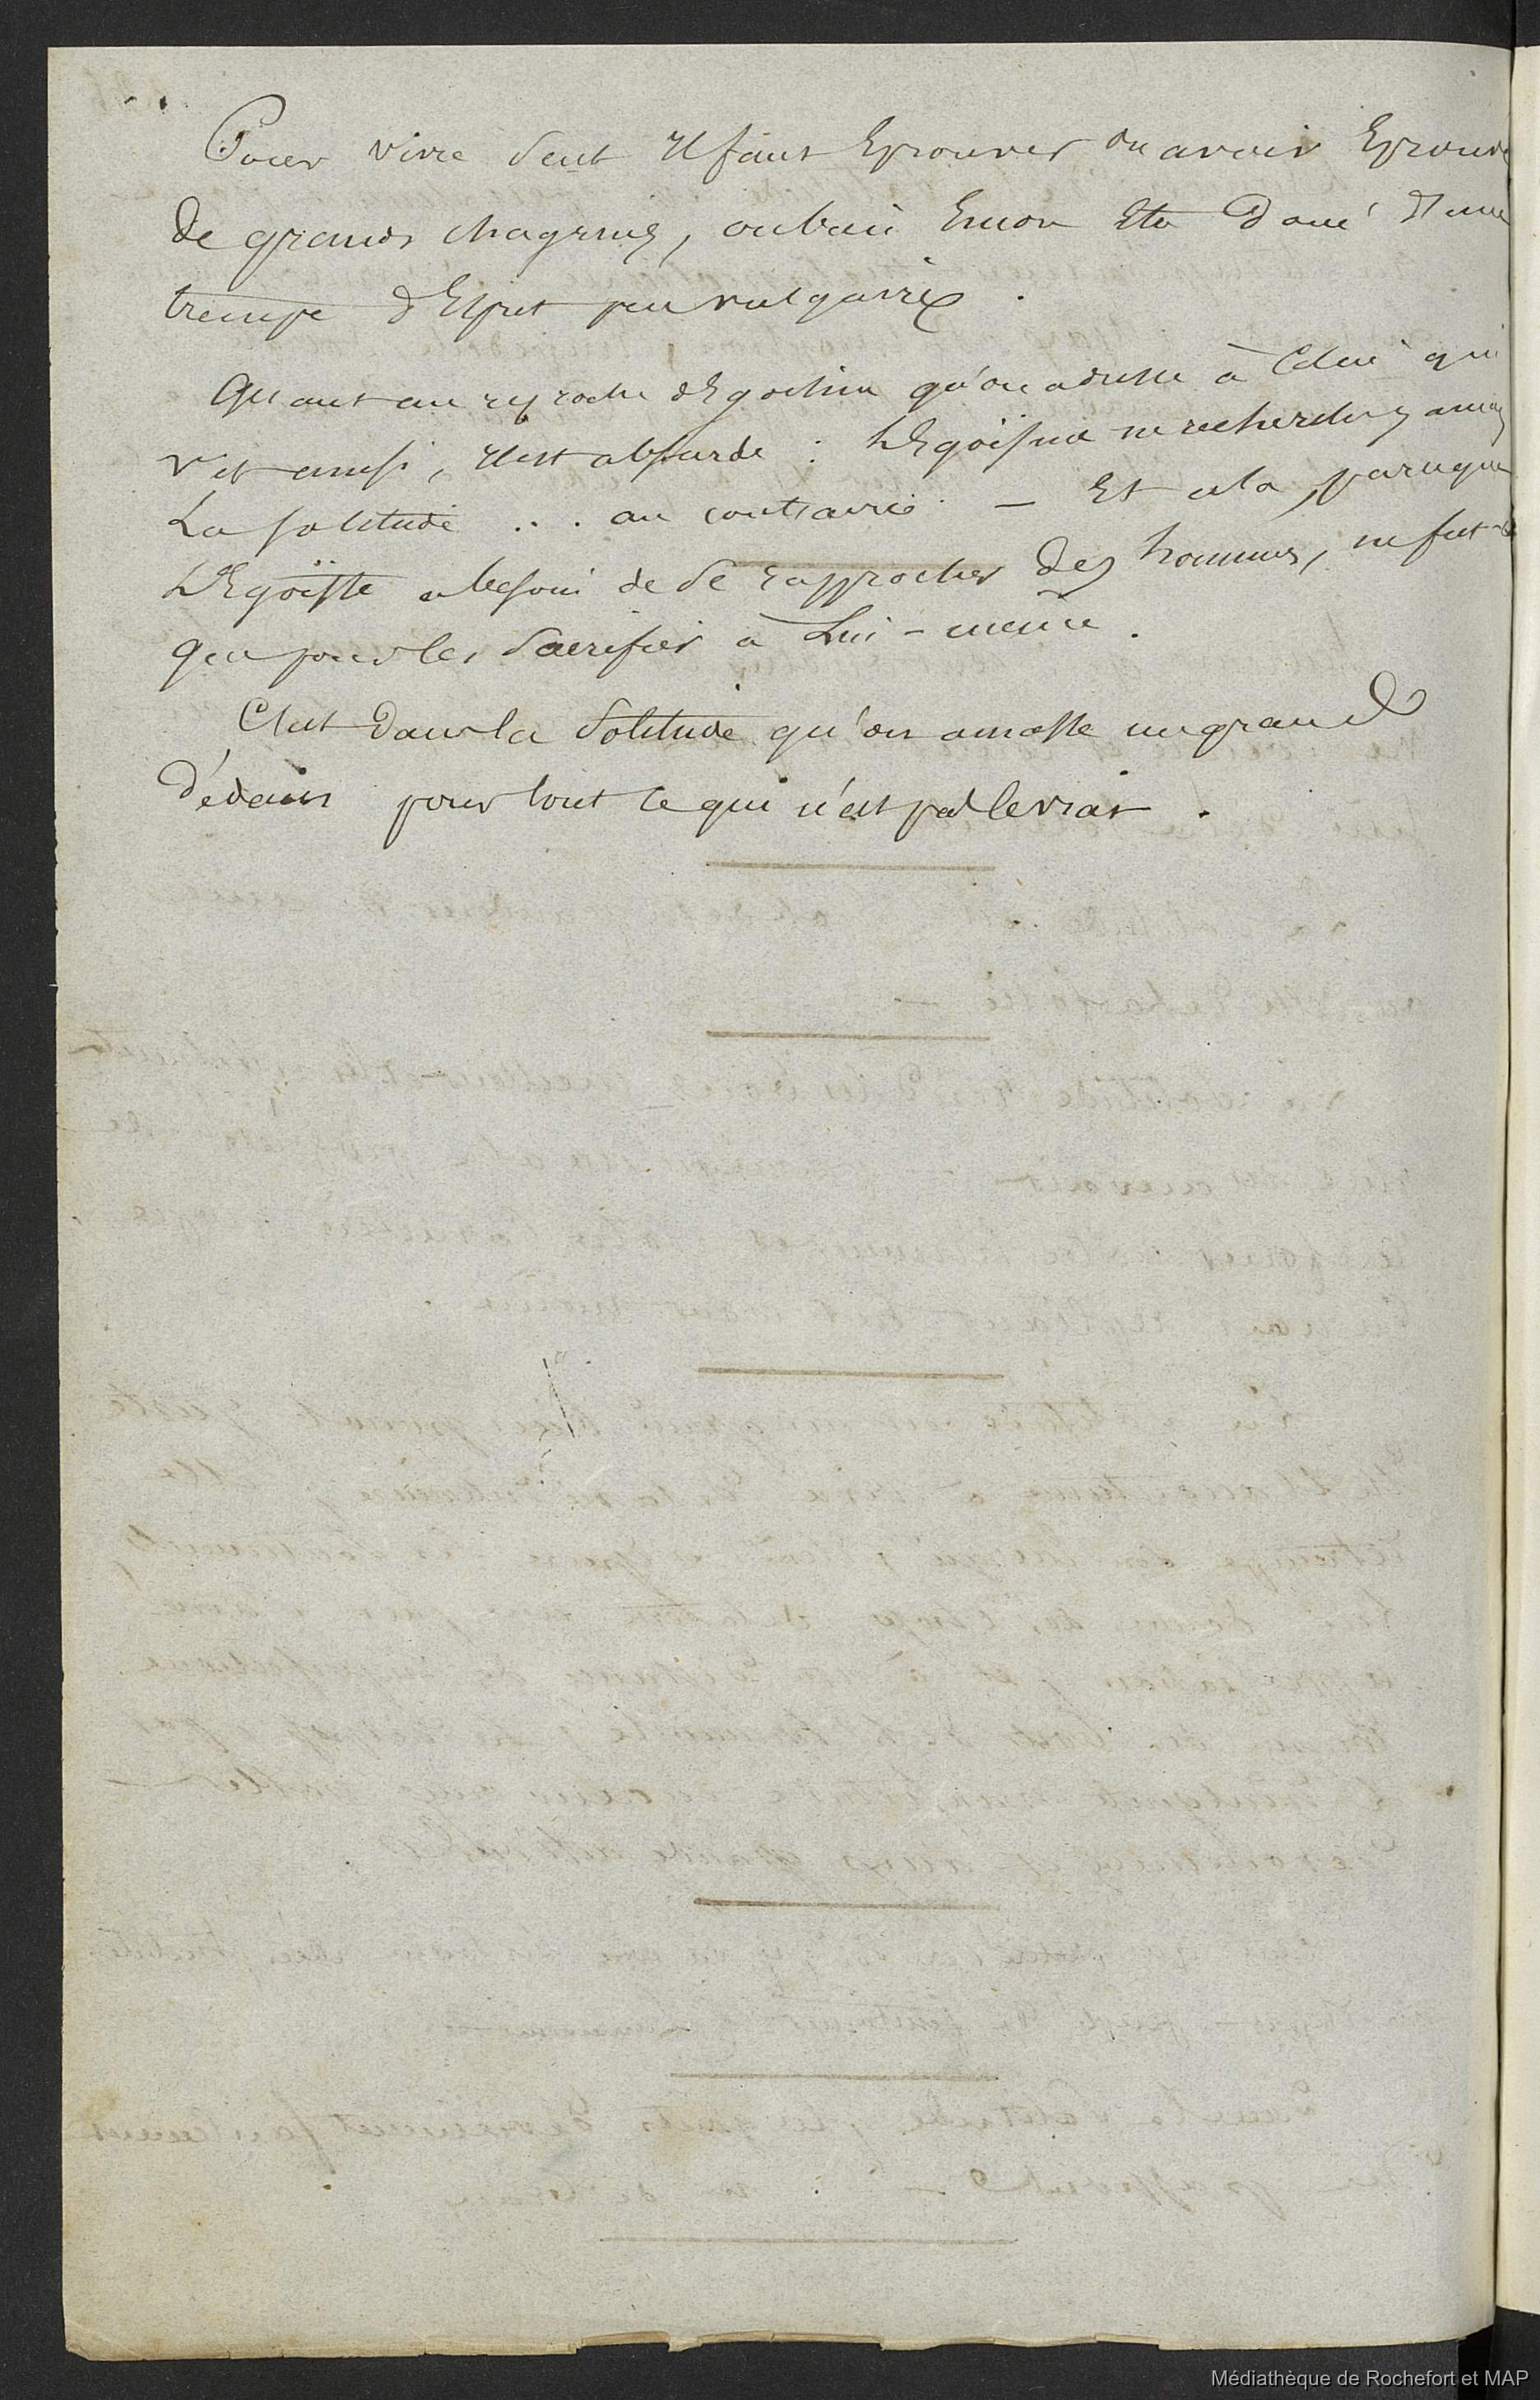 Pour vivre seul Il faut Eprouver ou avoir Eprouvé
de grands chagrins, ou bien Encor Etre Doué d'une
trempe d'Esprit peu vulgaire.
Quant au reproche d'Egoïsme qu'on adresse à Celui qui
vit ainsi, Il est absurde : L'Egoïsme ne recherche jamais
La solitude ... au contraire. — Et cela, parceque
L'Egoïste a besoin de se rapprocher des hommes, ne fut-ce
que pour les Sacrifier à Lui-même.
C'est Dans la Solitude qu'on amasse un grand
dédain pour tout ce qui n'est pas le vrai.
Médiathèque de Rochefort et MAP